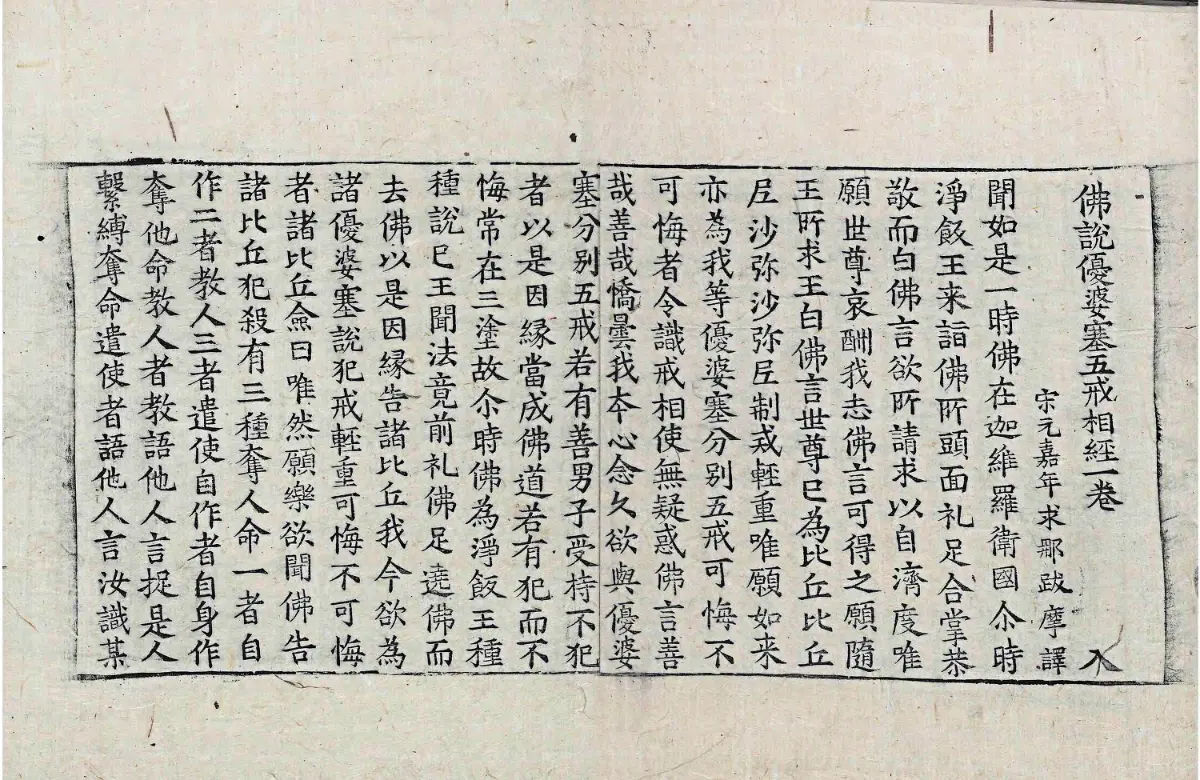 佛說優婆塞五戒相經一卷 入
宋元嘉年求那跋摩譯
聞如是一時佛在迦維羅衛國尒時
淨飯王来詣佛所頭面礼足合掌恭
敬而白佛言欲所請求以自濟度唯
願世尊哀酬我志佛言可得之願隨
王所求王白佛言世尊已為比丘比丘
尼沙弥沙弥尼制戒輕重唯願如来
亦為我等優婆塞分别五戒可悔不
可悔者令識戒相使無疑惑佛言善
哉善哉憍曇我夲心念久欲與優婆
塞分别五戒若有善男子受持不犯
者以是因緣當成佛道若有犯而不
悔常在三塗故尒時佛為淨飯王種
種說已王聞法竟前礼佛足遶佛而
去佛以是因緣告諸比丘我今欲為
諸優婆塞說犯戒輕重可悔不可悔
者諸比丘僉曰唯然願樂欲聞佛告
諸比丘犯殺有三種奪人命一者自
作二者教人三者遣使自作者自身作
奪他命教人者教語他人言捉是人
繫縛奪命遣使者語他人言汝識某